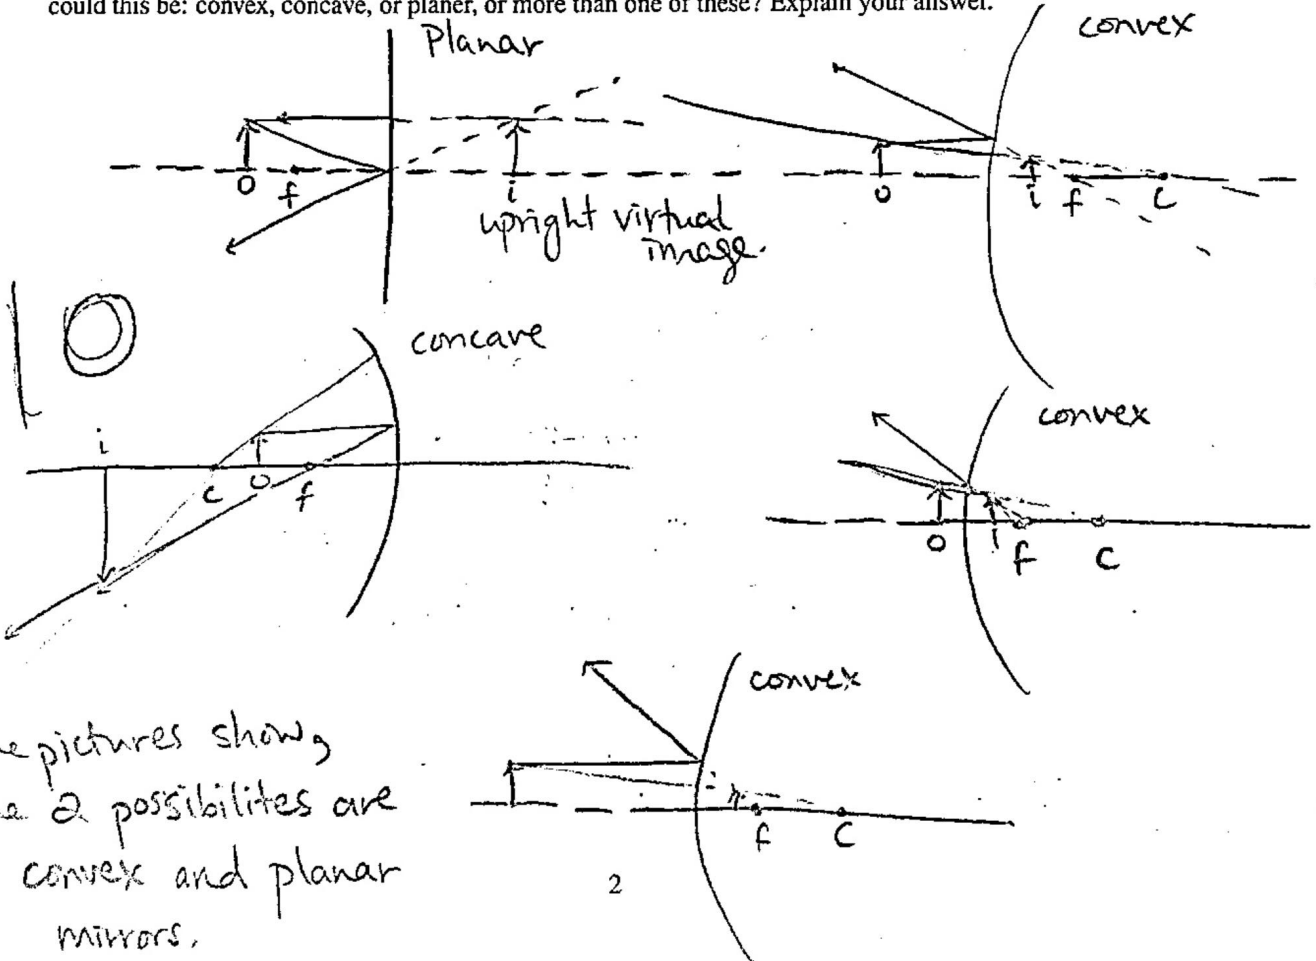 could this be: convex, concave, or planer, or more than one of these? Explain your answer.
Planar
convex
O f i
upright virtual
image.
O i f C
10
concave
i
C O f
convex
O i f C
convex
i
f C
pictures show,
2 possibilites are
convex and planar
mirrors.
2